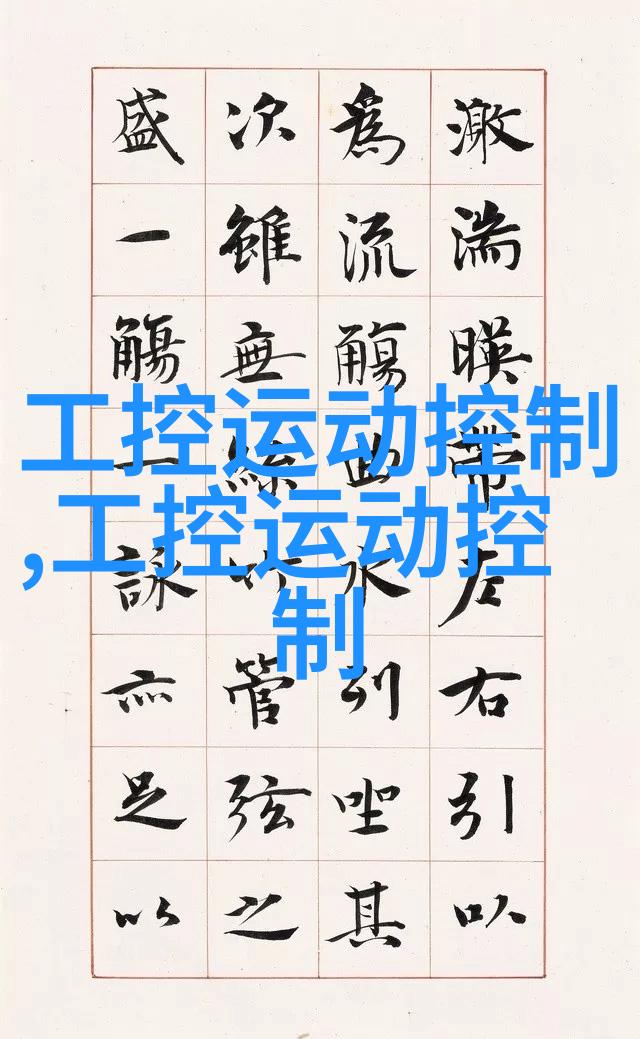 激湍暎帶左右引以
爲流觴曲水列坐其
次雖無絲竹管弦之
盛一觴一詠亦足以
工控运动控制
,工控运动控
制